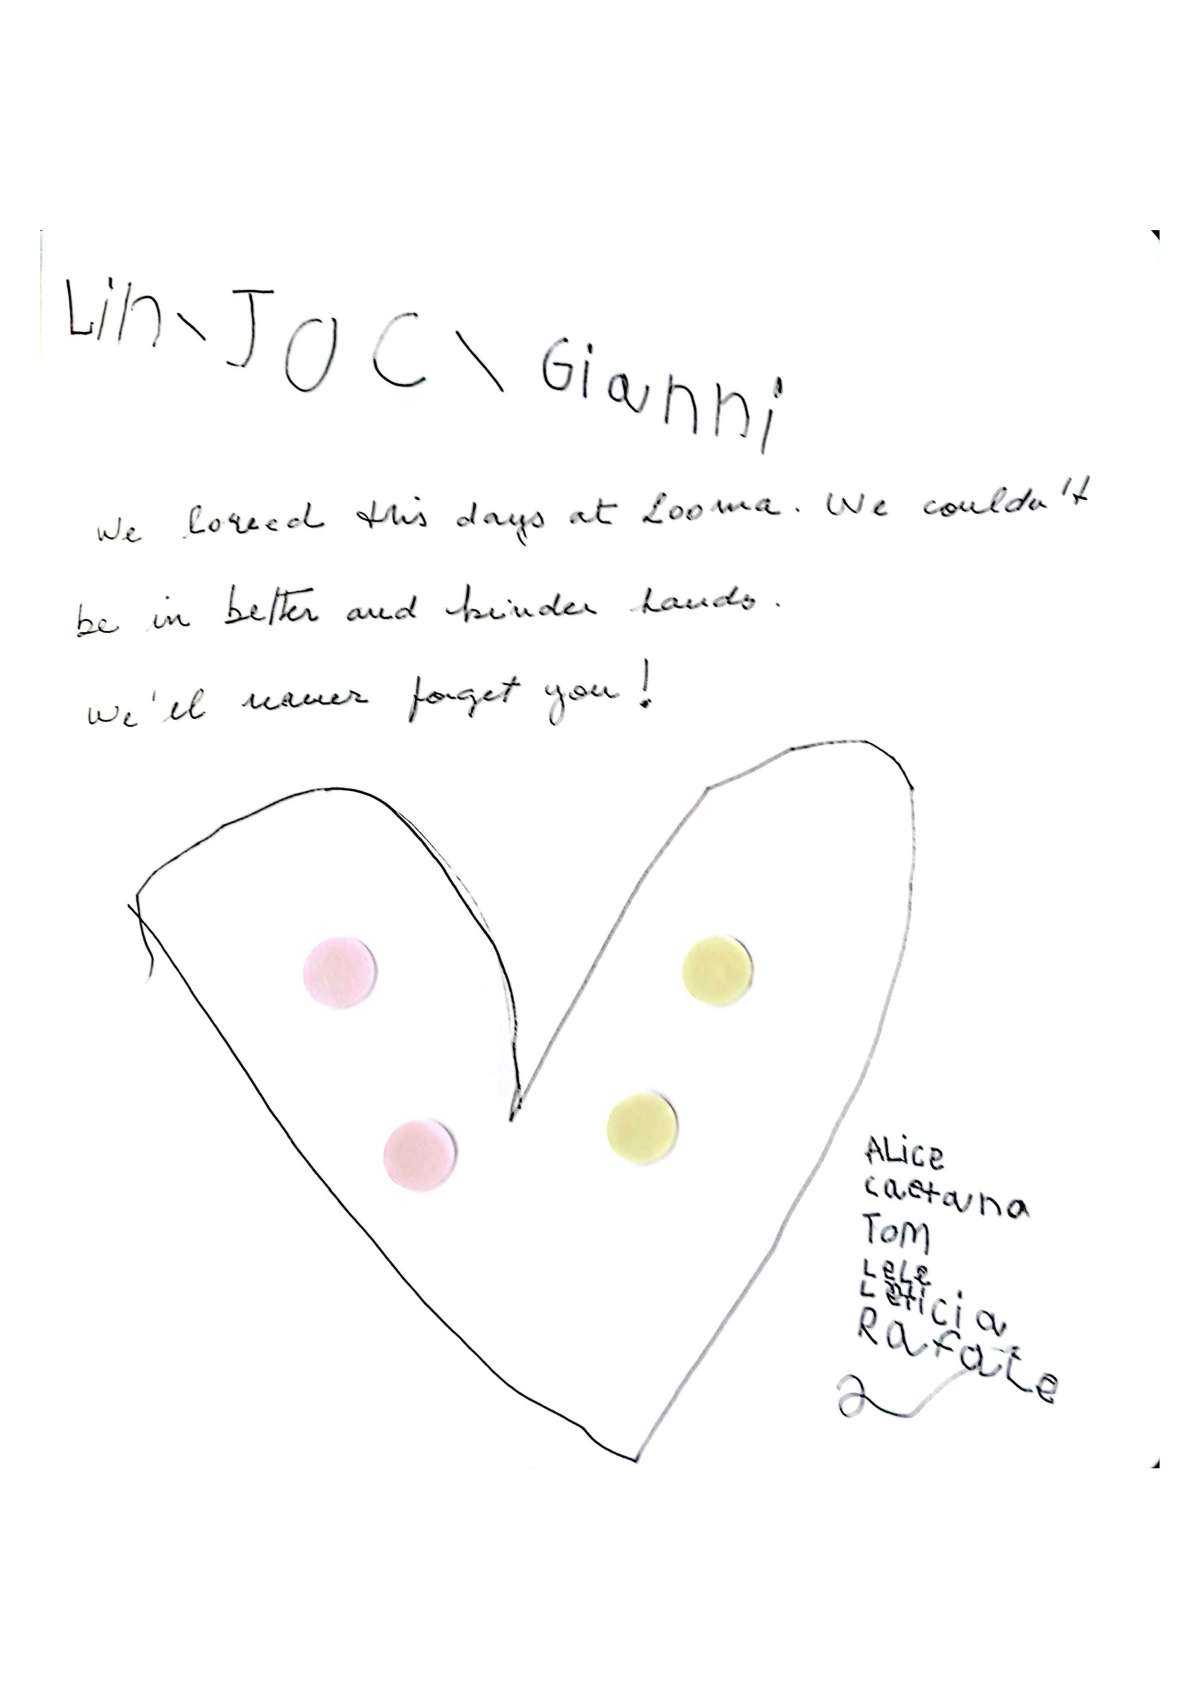 Lin \ JOC \ Gianni
We loved this days at Looma. We couldn't
be in better and kinder hands.
We'll never forget you!
ALicE
caetana
TOM
LeLe
Leticia